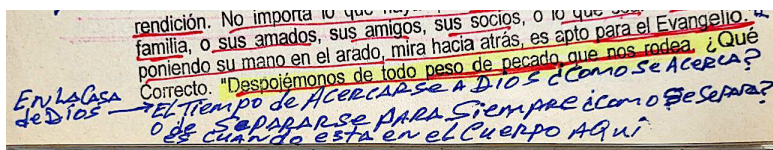 rendición. No importa lo que
familia, o sus amados, sus amigos, sus socios, o lo que
poniendo su mano en el arado, mira hacia atrás, es apto para el Evangelio."
Correcto. "Despojémonos de todo peso de pecado que nos rodea. ¿Qué
EN LA CASA
de DIOS → EL TIEMPO de ACERCARSE A DIOS ¿COMO SE ACERCA?
O de SEPARARSE PARA SIEMPRE ¿COMO SE SEPARA?
ES CUANDO ESTA EN EL CUERPO AQUÍ